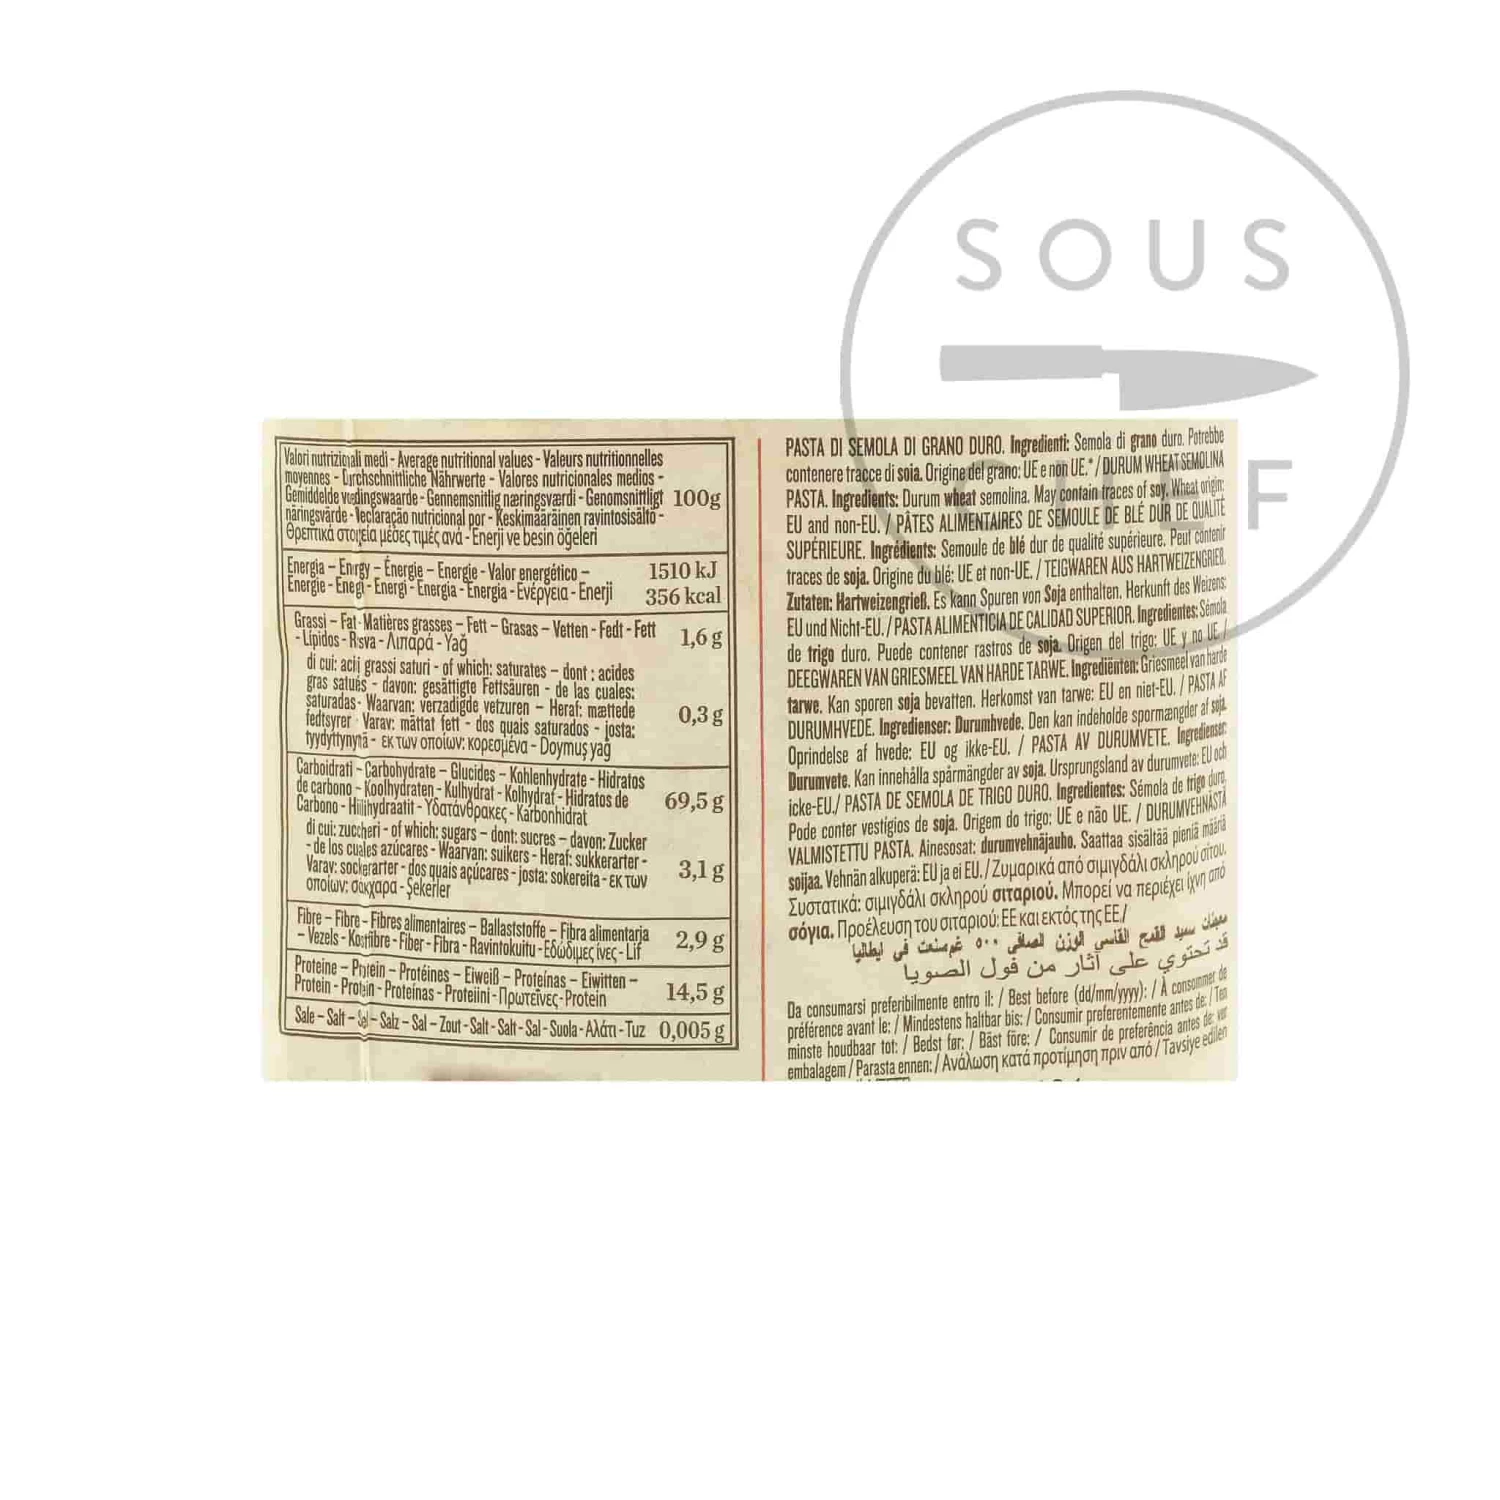 SOUS
CHEF
Valori nutrizionali medi - Average nutritional values - Valeurs nutritionnelles
moyennes - Durchschnittliche Nährwerte - Valores nutricionales medios -
Gemiddelde voedingswaarde - Gennemsnitlig næringsværdi - Genomsnittligt 100g
näringsvärde - Declaração nutricional por - Keskimääräinen ravintosisältö -
Θρεπτικά στοιχεία μέσες τιμές ανά - Enerji ve besin öğeleri
Energia – Energy – Énergie – Energie - Valor energético – 1510 kJ
Energie - Energi - Energi - Energia - Energia - Ενέργεια - Enerji 356 kcal
Grassi – Fat - Matières grasses – Fett – Grasas – Vetten - Fedt - Fett 1,6 g
- Lípidos - Rasva - Λιπαρά - Yağ
di cui: acidi grassi saturi - of which: saturates – dont : acides
gras saturés - davon: gesättigte Fettsäuren - de las cuales:
saturadas - Waarvan: verzadigde vetzuren – Heraf: mættede 0,3 g
fedtsyrer - Varav: mättat fett - dos quais saturados - josta:
tyydyttynyttä - εκ των οποίων: κορεσμένα - Doymuş yağ
Carboidrati – Carbohydrate – Glucides – Kohlenhydrate - Hidratos
de carbono - Koolhydraten - Kulhydrat - Kolhydrat - Hidratos de 69,5 g
Carbono - Hiilihydraatit - Υδατάνθρακες - Karbonhidrat
di cui: zuccheri - of which: sugars – dont: sucres – davon: Zucker
- de los cuales azúcares - Waarvan: suikers - Heraf: sukkerarter - 3,1 g
Varav: sockerarter - dos quais açúcares - josta: sokereita - εκ των
οποίων: σάκχαρα - Şekerler
Fibre – Fibre – Fibres alimentaires – Ballaststoffe – Fibra alimentaria 2,9 g
– Vezels - Kostfibre - Fiber - Fibra - Ravintokuitu - Εδώδιμες ίνες - Lif
Proteine – Protein – Protéines – Eiweiß – Proteínas – Eiwitten – 14,5 g
Protein - Protein - Proteínas - Proteiini - Πρωτεΐνες - Protein
Sale – Salt – Sel – Salz – Sal – Zout - Salt - Salt - Sal - Suola - Αλάτι - Tuz 0,005 g
PASTA DI SEMOLA DI GRANO DURO. Ingredienti: Semola di grano duro. Potrebbe
contenere tracce di soia. Origine del grano: UE e non UE.* / DURUM WHEAT SEMOLINA
PASTA. Ingredients: Durum wheat semolina. May contain traces of soy. Wheat origin:
EU and non-EU. / PÂTES ALIMENTAIRES DE SEMOULE DE BLÉ DUR DE QUALITÉ
SUPÉRIEURE. Ingrédients: Semoule de blé dur de qualité supérieure. Peut contenir
traces de soja. Origine du blé: UE et non-UE. / TEIGWAREN AUS HARTWEIZENGRIEẞ.
Zutaten: Hartweizengrieß. Es kann Spuren von Soja enthalten. Herkunft des Weizens:
EU und Nicht-EU. / PASTA ALIMENTICIA DE CALIDAD SUPERIOR. Ingredientes: Sémola
de trigo duro. Puede contener rastros de soja. Origen del trigo: UE y no UE. /
DEEGWAREN VAN GRIESMEEL VAN HARDE TARWE. Ingrediënten: Griesmeel van harde
tarwe. Kan sporen soja bevatten. Herkomst van tarwe: EU en niet-EU. / PASTA AF
DURUMHVEDE. Ingredienser: Durumhvede. Den kan indeholde spormængder af soja.
Oprindelse af hvede: EU og ikke-EU. / PASTA AV DURUMVETE. Ingredienser:
Durumvete. Kan innehålla spårmängder av soja. Ursprungsland av durumvete: EU och
icke-EU./ PASTA DE SEMOLA DE TRIGO DURO. Ingredientes: Sémola de trigo duro.
Pode conter vestígios de soja. Origem do trigo: UE e não UE. / DURUMVEHNÄSTÄ
VALMISTETTU PASTA. Ainesosat: durumvehnäjauho. Saattaa sisältää pieniä määriä
soijaa. Vehnän alkuperä: EU ja ei EU. / Ζυμαρικά από σιμιγδάλι σκληρού σίτου.
Συστατικά: σιμιγδάλι σκληρού σιταριού. Μπορεί να περιέχει ίχνη από
σόγια. Προέλευση του σιταριού: ΕΕ και εκτός της ΕΕ /
معجنات سميد القمح القاسي الوزن الصافي ٥٠٠ غم صنعت في ايطاليا
قد تحتوي على آثار من فول الصويا
Da consumarsi preferibilmente entro il: / Best before (dd/mm/yyyy): / À consommer de
préférence avant le: / Mindestens haltbar bis: / Consumir preferentemente antes de: / Ten
minste houdbaar tot: / Bedst før: / Bäst före: / Consumir de preferência antes de: ver
embalagem / Parasta ennen: / Ανάλωση κατά προτίμηση πριν από / Tavsiye edilen